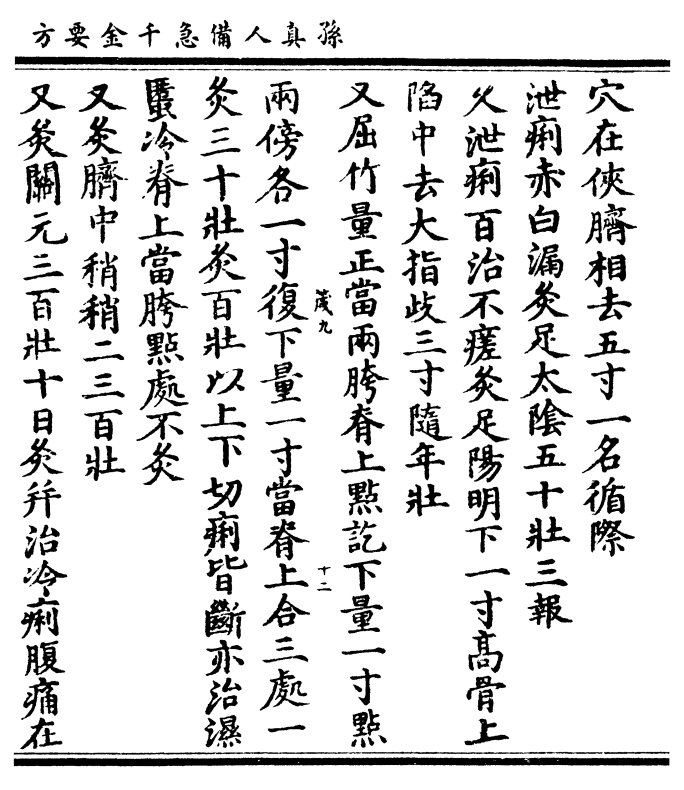 孫真人備急千金要方
穴在俠臍相去五寸一名循際
泄痢赤白漏灸足太陰五十壯三報
久泄痢百治不瘥灸足陽明下一寸高骨上
陷中去大指歧三寸隨年壯
又屈竹量正當兩胯脊上點訖下量一寸點
兩傍各一寸復下量一寸當脊上合三處一
灸三十壯灸百壯以上下切痢皆斷亦治濕
䘌冷脊上當胯點處不灸
又灸臍中稍稍二三百壯
又灸關元三百壯十日灸并治冷痢腹痛在
箴九
十二